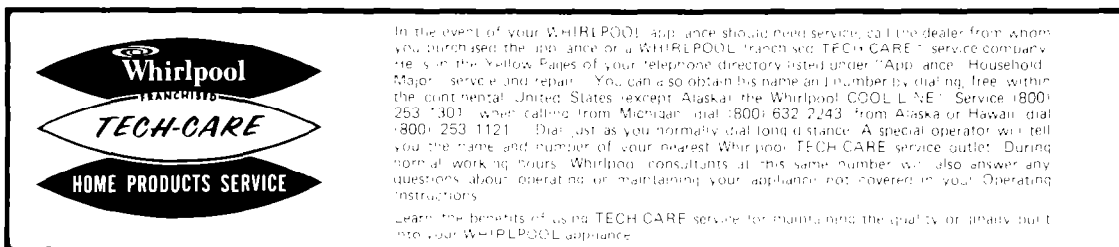 Whirlpool
FRANCHISED
TECH-CARE
HOME PRODUCTS SERVICE
In the event of your WHIRLPOOL appliance should need service, call the dealer from whom
you purchased the appliance or a WHIRLPOOL franchised TECH-CARE service company.
He is in the Yellow Pages of your telephone directory listed under "Appliance Household
Major service and repair You can also obtain his name and number by dialing, free, within
the continental United States (except Alaska) the Whirlpool COOL-LINE Service (800)
253-1301 when calling from Michigan dial (800) 632-2243 from Alaska or Hawaii dial
(800) 253-1121 Dial just as you normally dial long distance. A special operator will tell
you the name and number of your nearest Whirlpool TECH-CARE service outlet. During
normal working hours, Whirlpool consultants at this same number will also answer any
questions about operating or maintaining your appliance not covered in your Operating
Instructions
Learn the benefits of using TECH-CARE service for maintaining the quality originally built
into your WHIRLPOOL appliance